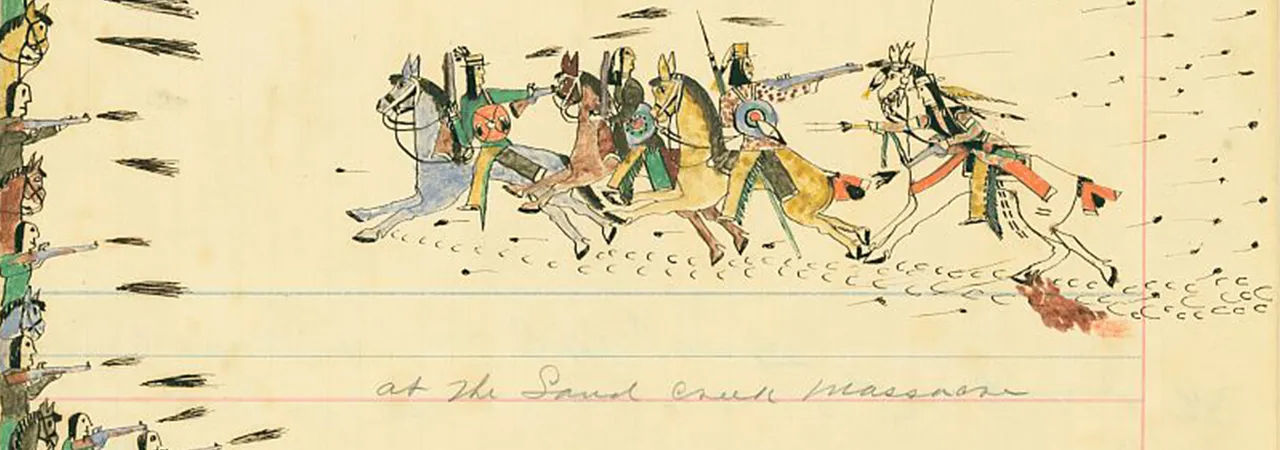 at the Sand Creek Massacre